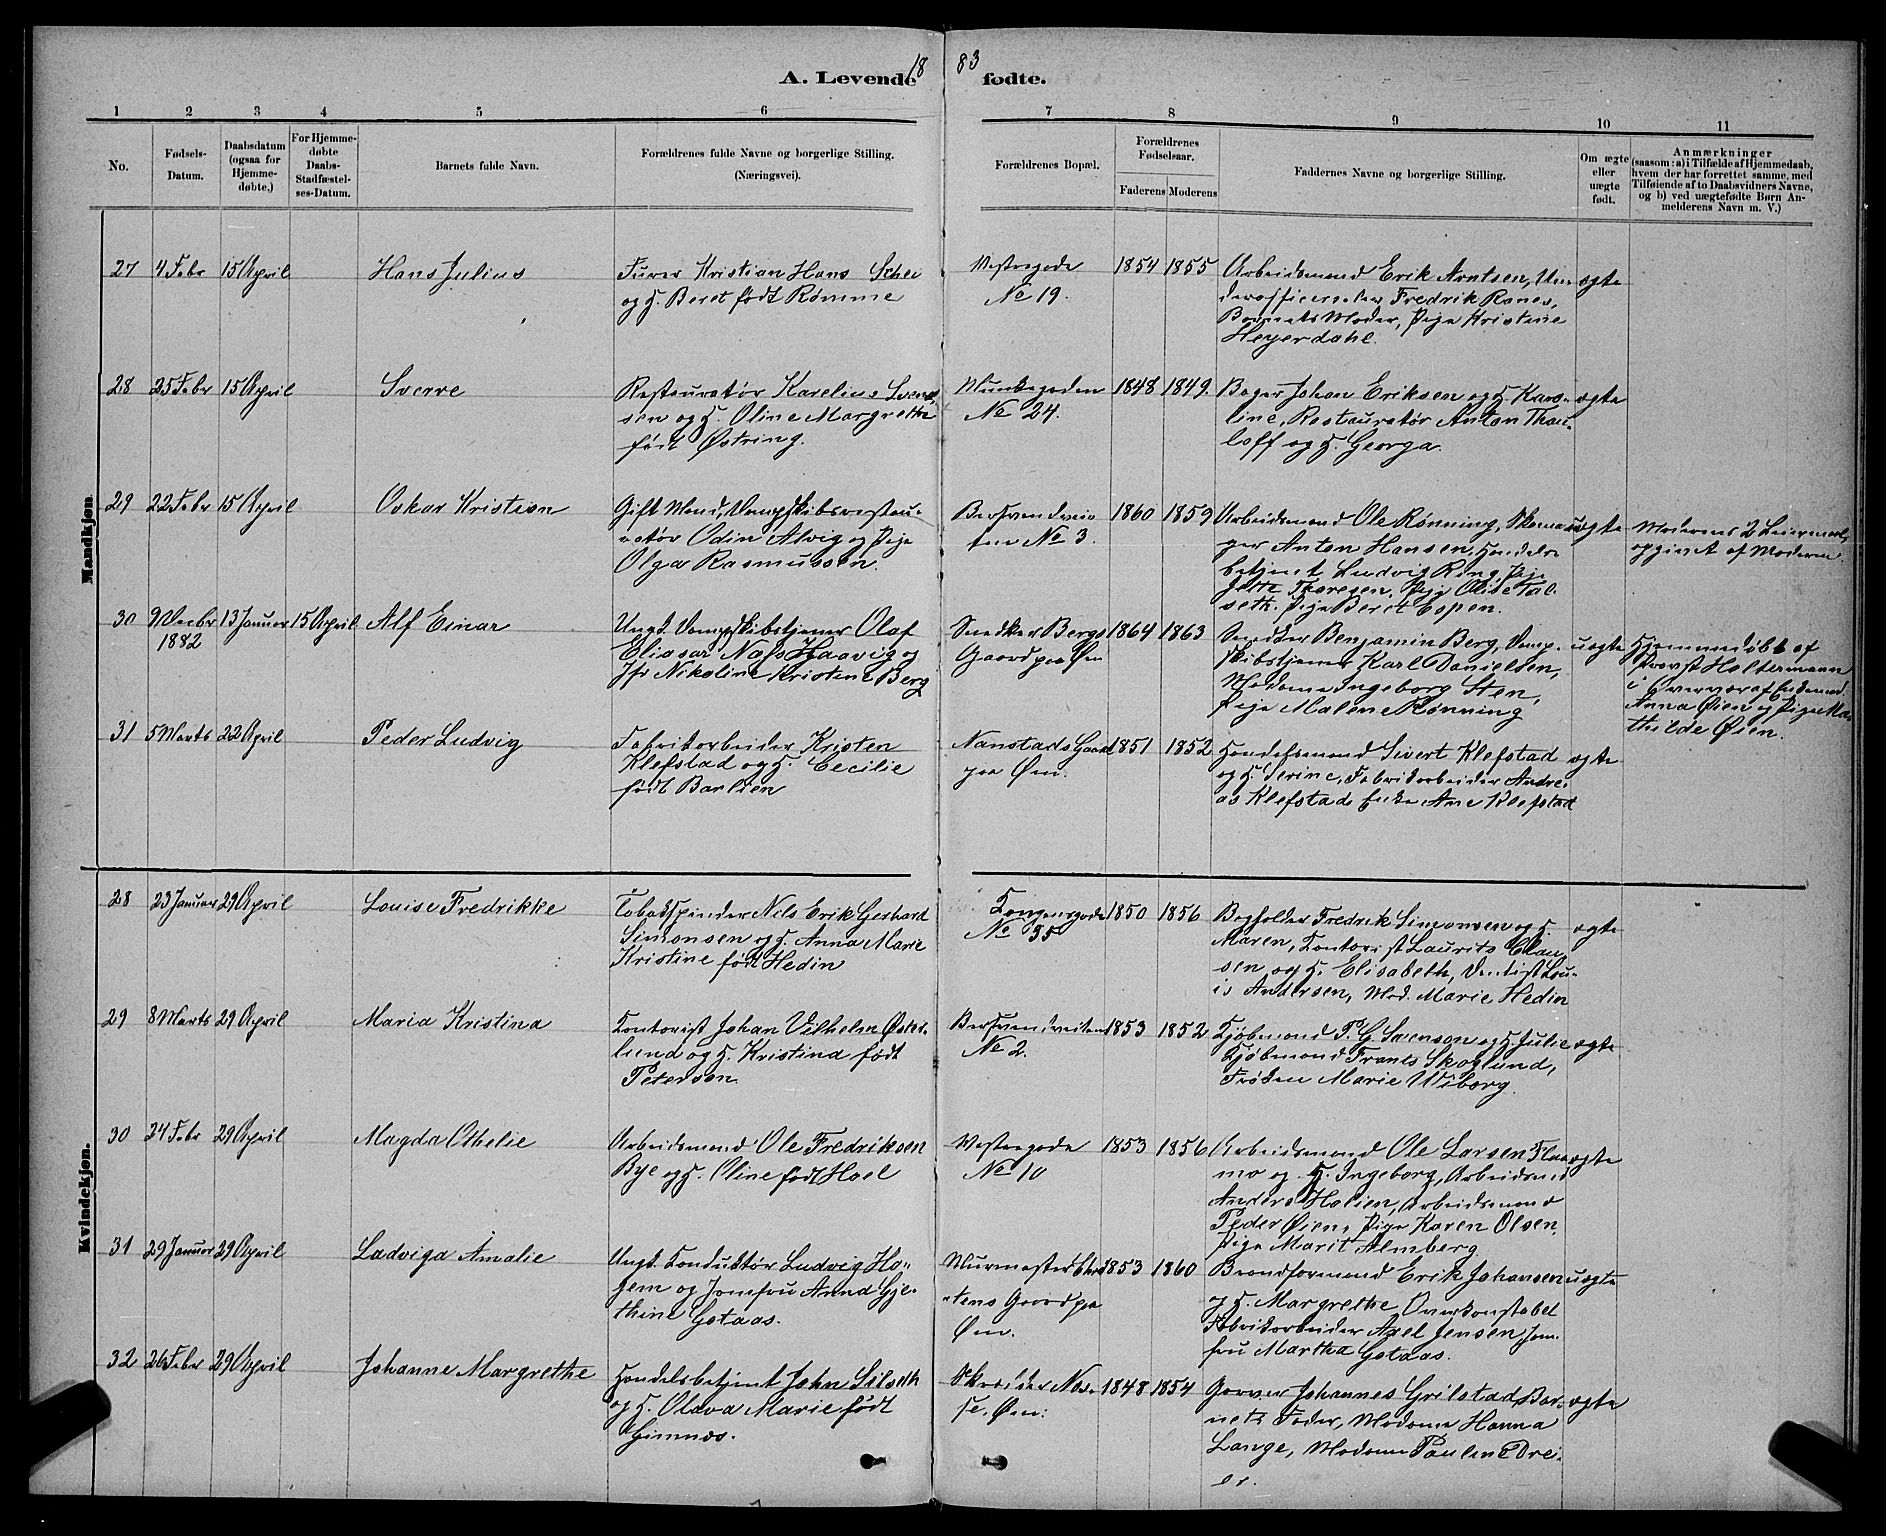 18 83
A. Levende fødte.
1 2 3 4 5 6 7 8 9 10 11
No.
Fødsels-
Datum.
Daabsdatum
(ogsaa for
Hjemme-
døbte.)
For Hjemme-
døbte
Daabs-
Stadfæstel-
ses-Datum.
Barnets fulde Navn.
Forældrenes fulde Navne og borgerlige Stilling.
(Næringsvei).
Forældrenes Bopæl.
Forældrenes
Fødselsaar.
Faderens Moderens
Faddernes Navne og borgerlige Stilling.
Om ægte
eller
uægte
født.
Anmærkninger
(saasom: a) i Tilfælde af Hjemmedaab,
hvem der har forrettet samme, med
Tilføiende af to Daabsvidners Navne,
og b) ved uægtefødte Børn An-
melderens Navn m. V.)
Mandkjøn
27 4 Febr 15 April Hans Julius
Furer Kristian Hans Schei
og H. Beret født Rømme
Vestregade
No 19.
1854 1855
Arbeidsmand Erik Arntsen, Un-
derofficerselev Fredrik Ranes,
Barnets Moder, Pige Kristine
Heyerdahl.
ægte
28 25 Febr 15 April Sverre
Restauratør Karelius Svend-
sen og H. Oline Margrethe
født Østring.
Munkegaden
No 24.
1848 1849.
Bager Johan Eriksen og H. Karo-
line, Restauratør Anton Thau-
loff og H. Georga.
ægte
29 22 Febr 15 April Oskar Kristian
Gift Mand, Dampskibsrestau-
ratør Odin Alvig og Pige
Olga Rasmussen.
Bersvendvei-
ten No 3.
1860 1859
Arbeidsmand Ole Rønning, Skoma-
ger Anton Hansen, Handels-
betjent Ludvig Ring, Pige
Jette Thoresen, Pige Oline Tal-
seth, Pige Beret Espen.
uægte
Moderens 2 Leiermaal,
opgivet af Moderen.
30 9 Decbr
1882
13 Januar 15 April Alf Einar
Ungk. Dampskibstjener Olaf
Eliasar Næss Haavig og
Jfr Nikoline Kristine Berg
Snedker Bergs
Gaard paa Øen
1864 1863
Snedker Benjamin Berg, Damp-
skibstjener Karl Danielsen,
Madame Ingeborg Sten,
Pige Malene Rønning
uægte
Hjemmedøbt af
Provst Holtermann
i Overvær af
Anna Øien og Pige Ma-
thilde Øien.
31 5 Marts 22 April Peder Ludvig
Fabrikarbeider Kristen
Klefstad og H. Cecilie
født Barlien
Nanstads Gaard
paa Øen.
1851 1852
Handelsmand Sivert Klefstad
og H. Serine, Fabrikarbeider Andre-
as Klefstad, Enke Ane Klefstad
ægte
Kvindekjøn.
28 23 Januar 29 April Louise Fredrikke
Tobakspinder Nils Erik Gerhard
Simonsen og H. Anna Marie
Kristine født Hedin
Kongensgade
No 35
1850 1856
Bogholder Fredrik Simonsen og H.
Maren, Kontorist Laurits Clau-
sen og H. Elisabeth, Dentist Lou-
is Andersen, Mad. Marie Hedin
ægte
29 8 Marts 29 April Maria Kristina
Kontorist Johan Vilhelm Øster-
lund og H. Kristina født
Peterson
Bersvendveiten
No 2.
1853 1852
Kjøbmand P. G. Svenson og H. Julie
Kjøbmand Frants Skoglund,
Frøken Marie Wiborg.
ægte
30 24 Febr 29 April Magda Othelie
Arbeidsmand Ole Fredriksen
Bye og H. Oline født Hoel
Vestregade
No 10
1853 1856
Arbeidsmand Ole Larsen Flaa-
mo og H. Ingeborg, Arbeidsmd
Anders Halien, Arbeidsmand
Peder Øien, Pige Karen Olsen,
Pige Marit Almberg.
ægte
31 29 Januar 29 April Ladviga Amalie
Ungk. Konduktør Ludvig Ho-
jem og Jomfru Anna Gje-
thine Gotaas.
Murmester
Gaard paa
Øen.
1853 1860
Brandformand Erik Johansen
og H. Margrethe, Overkonstabel
Fabrikarbeider Axel Jensen, Jom-
fru Martha Gotaas.
uægte
32 26 Febr 29 April Johanne Margrethe
Handelsbetjent John Silseth
og H. Olava Marie født
Gimnes.
Skræder Nos-
se. Øen.
1848 1854
Garver Johannes Grilstad, Bar-
nets Fader, Madame Hanna
Lange, Madame Pauline Drei-
er.
ægte